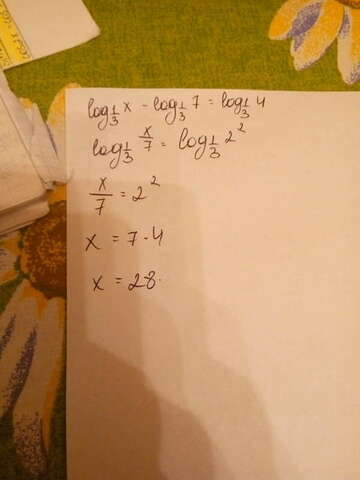 log_{1/3} x - log_{1/3} 7 = log_{1/3} 4
log_{1/3} x/7 = log_{1/3} 2^2
x/7 = 2^2
x = 7 · 4
x = 28.